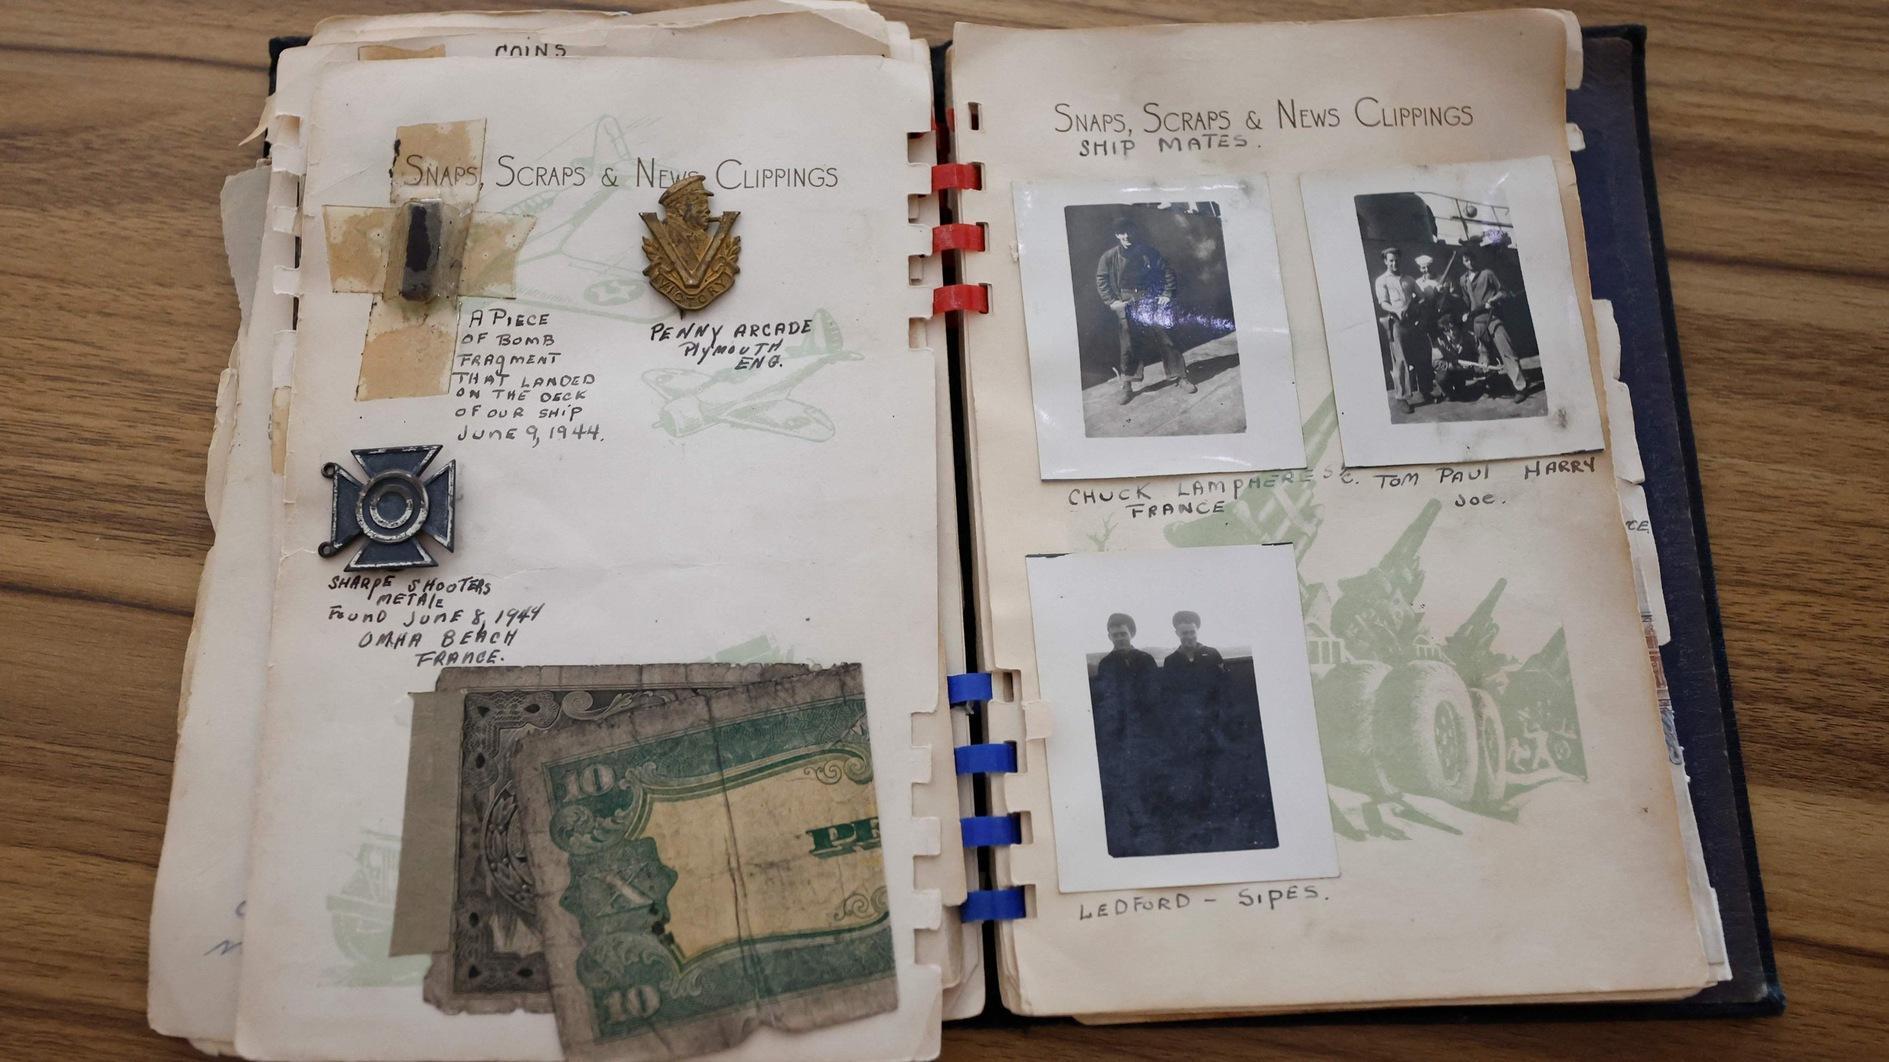 COINS
SNAPS, SCRAPS & NEWS CLIPPINGS
VICTORY
A PIECE
OF BOMB
FRAGMENT
THAT LANDED
ON THE DECK
OF OUR SHIP
JUNE 9, 1944.
PENNY ARCADE
PLYMOUTH
ENG.
SHARPE SHOOTERS
METALE
FOUND JUNE 8, 1944
OMHA BEACH
FRANCE.
10
PE
X
10
SNAPS, SCRAPS & NEWS CLIPPINGS
SHIP MATES.
CHUCK LAMPHERE S1/C.
FRANCE
TOM PAUL HARRY
JOE.
LEDFORD - SIPES.